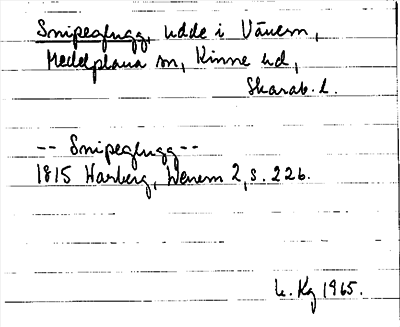 Snipeglugg, udde i Vänern,
Medelplana sn, Kinne hd,
Skarab. l.
-- Snipeglugg --
1815 Harberg, Wenern 2, s. 226.
L. Kg 1965.